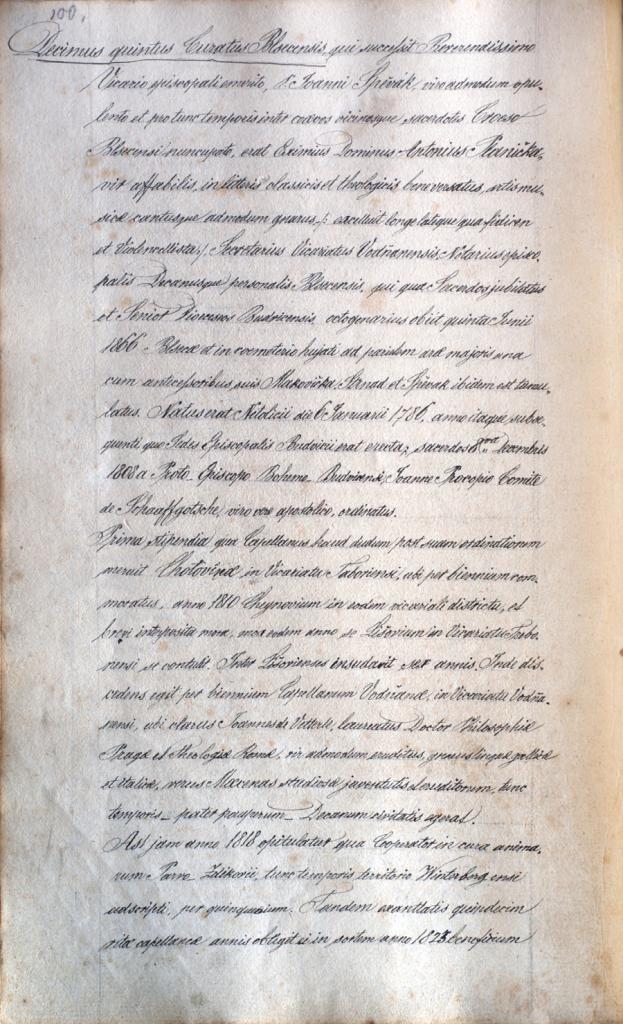 100.
Decimus quintus Curatus Blsecensis, qui successit Reverendissimo
Vicario episcopali emerito, P. Joanni Spivak, viro admodum opu-
lento et pro tunc temporis inter coævos vicinosque sacerdotes Croeso
Blsecensi nuncupato, erat Eximius Dominus Antonius Planička,
vir affabilis, in literis classicis et theologicis bene versatus, artis mu-
sicæ cantusque admodum gnarus, /: excelluit longe lateque qua fidicen
et Violoncellista :/ Secretarius Vicariatus Vodňanensis, Notarius episco-
palis Decanusque personalis Blsecensis, qui qua Sacerdos jubilatus
et Senior Dioeceseos Budvicensis octogenarius obiit quinta Junii
1866 Blsecæ et in coemeterio hujati ad parietem aræ majoris una
cum antecessoribus suis Makovička, Strnad et Spivak ibidem est tumu-
latus. Natus erat Netolicii die 6 Januarii 1786, anno itaque subse-
quenti quo Sedes Episcopalis Budvicii erat erecta; sacerdos 8va Decembris
1808 a Proto-Episcopo Bohemo-Budvicensi, Joanne Procopio Comite
de Schaaffgotsche, viro vere apostolico, ordinatus.
Prima stipendia qua Capellanus haud diu post suam ordinationem
meruit Chotovinæ in Vicariatu Taboriensi, ubi per biennium com-
moratus, anno 1810 Chynovium in eodem vicariali districtu, et
brevi interposita mora, mox eodem anno se Lišovium in Vicariatu Tabo-
riensi se contulit. Inter Lišovienses insudavit sex annis. Inde dis-
cedens egit per biennium Capellanum Vodňanæ, in Vicariatu Vodňa-
nensi, ubi clarus Joannes de Vetterle, laureatus Doctor Philosophiæ
Pragæ et theologiæ Romæ, vir admodum eruditus, gnarus linguæ gallicæ
et italicæ, verus Mæcenas studiosæ juventutis et eruditorum, tunc
temporis – pater pauperum – Decanum civitatis agerat.
Ast jam anno 1818 opitulatur qua Cooperator in cura anima-
rum Parvo-Zdikovii, tunc temporis territorio Winterbergensi
adscripti, per quinquenium. Tandem exantlatis quindecim
vitæ capellanæ annis obtigit ei in sortem anno 1823 beneficium